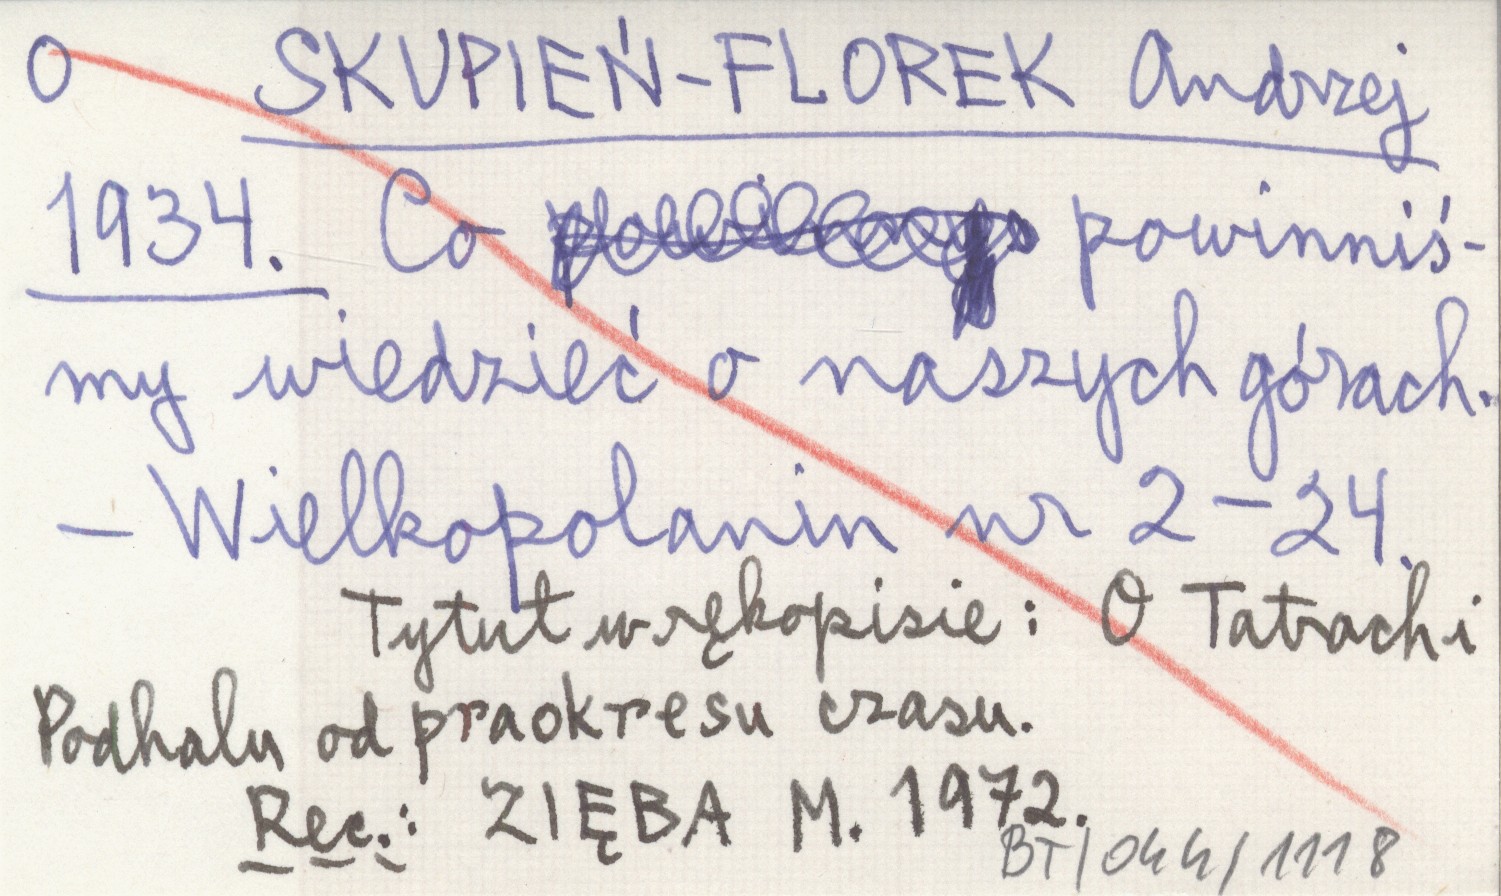 O SKUPIEŃ-FLOREK Andrzej
1934. Co powinniś-
my wiedzieć o naszych górach.
— Wielkopolanin nr 2-24.
Tytuł w rękopisie: O Tatrach i
Podhalu od praokresu czasu.
Rec.: ZIĘBA M. 1972.
BT/044/1118